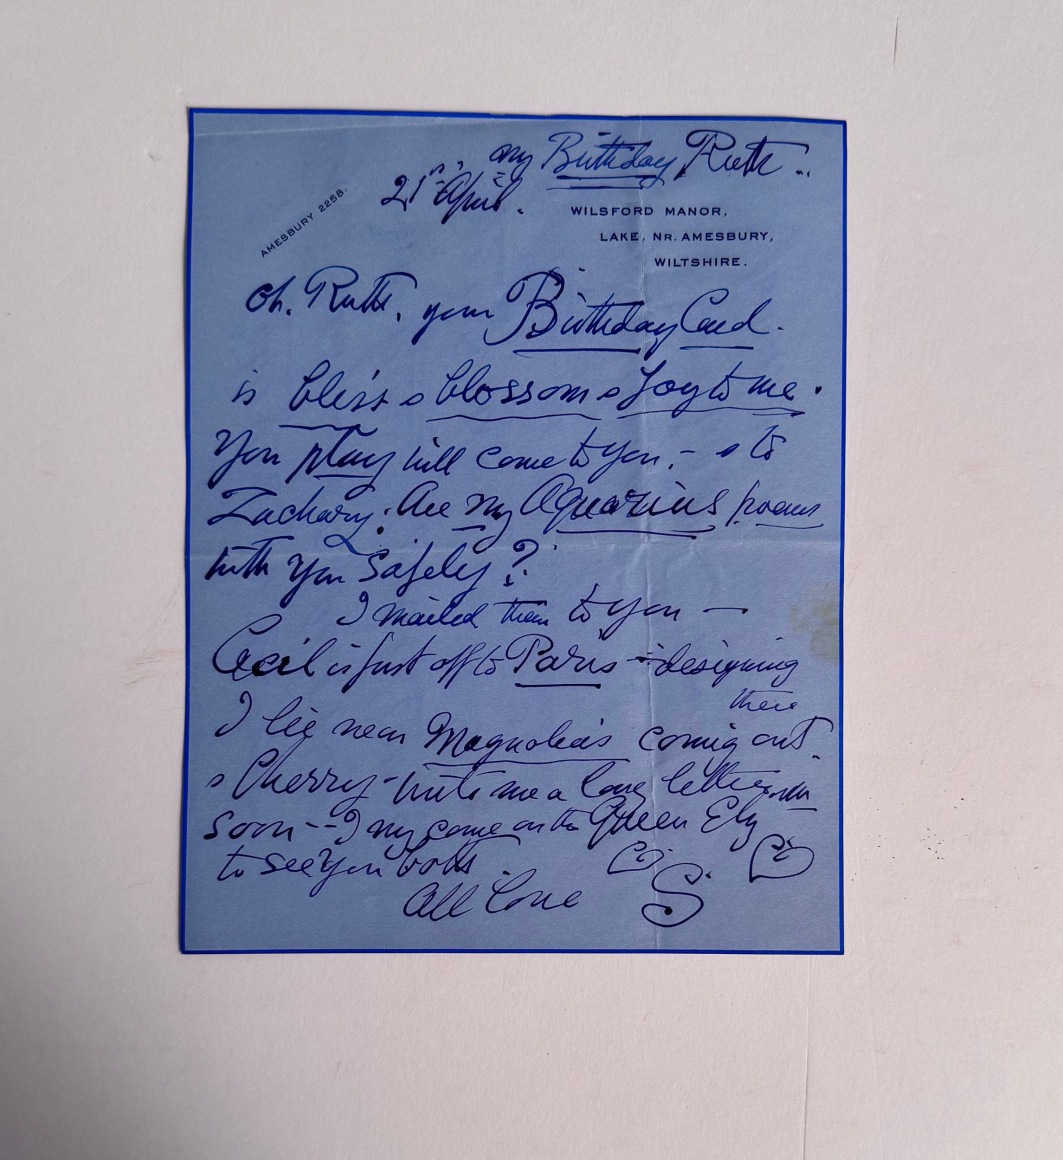 my Birthday Ruth.
21st April.
AMESBURY 2258.
WILSFORD MANOR,
LAKE, NR. AMESBURY,
WILTSHIRE.
Oh. Ruth, your Birthday Card.
is bliss & blossom & Joy to me.
You play will come to you. - & to
Zachary. Are my Aquarius poems
with you safely?
I mailed them to you —
Cecil is just off to Paris - designing
there
I lie near Magnolias coming out.
& Cherry - write me a love letter
soon -- I my come on the Queen Ely
to see you both.
All Love S